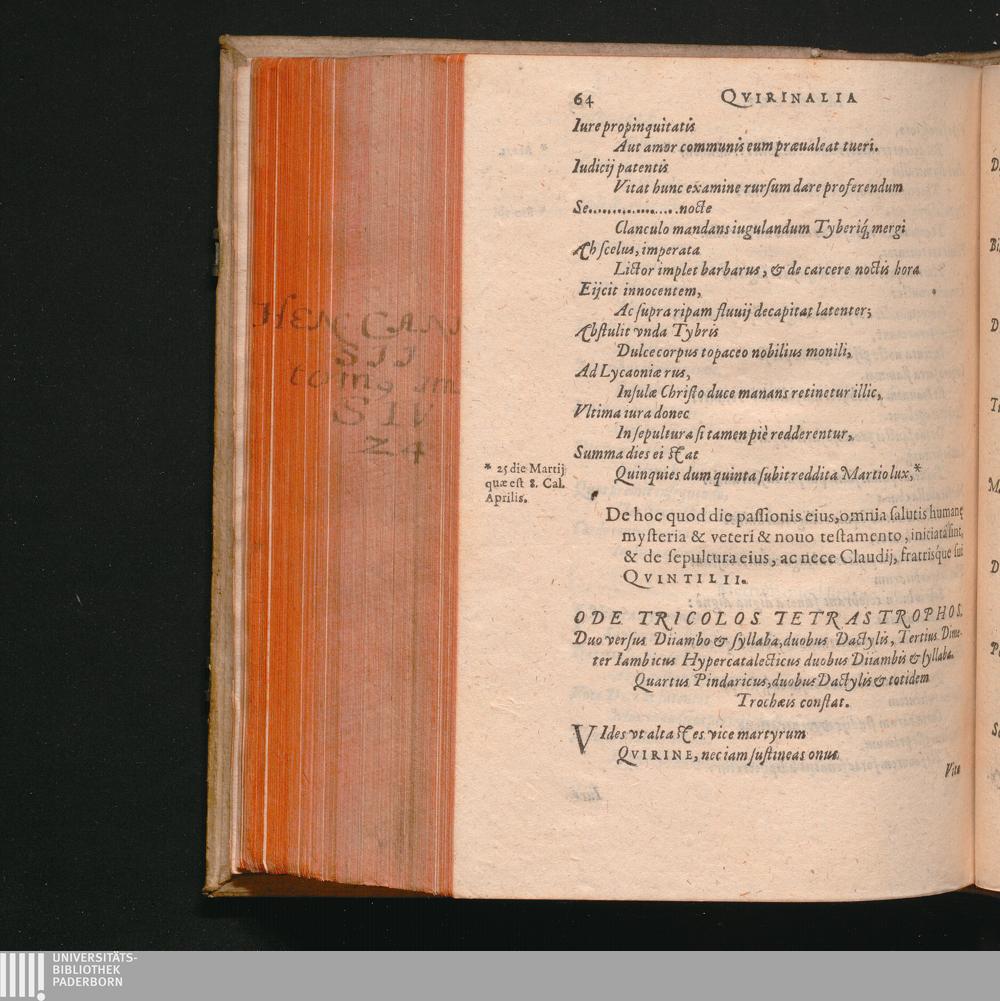 64 QVIRINALIA
Iure propinquitatis
Aut amor communis eum præualeat tueri.
Iudicij patentis
Vitat hunc examine rursum dare proferendum
Se..................nocte
Clanculo mandans iugulandum Tyberiq́; mergi
Ah scelus, imperata
Lictor implet barbarus, & de carcere noctis hora
Eijcit innocentem,
Ac supra ripam fluuij decapitat latenter;
Abstulit vnda Tybris
Dulce corpus topaceo nobilius monili,
Ad Lycaoniæ rus,
Insulæ Christo duce manans retinetur illic,
Vltima iura donec
In sepultura si tamen piè redderentur,
Summa dies ei stat
Quinquies dum quinta subit reddita Martio lux,*
* 25 die Martij
quæ est 8. Cal.
Aprilis.
De hoc quod die passionis eius, omnia salutis humanę
mysteria & veteri & nouo testamento, iniciata sint,
& de sepultura eius, ac nece Claudij, fratrisque sui
QVINTILII.
ODE TRICOLOS TETRASTROPHOS.
Duo versus Diiambo & syllaba, duobus Dactylis, Tertius Dime-
ter Iambicus Hypercatalecticus duobus Diiambis & syllaba.
Quartus Pindaricus, duobus Dactylis & totidem
Trochæis constat.
VIdes vt alta stes vice martyrum
QVIRINE, nec iam sustineas onus
Vita
HEN CANI
SII
tom9
SIV
24
UNIVERSITÄTS-
BIBLIOTHEK
PADERBORN